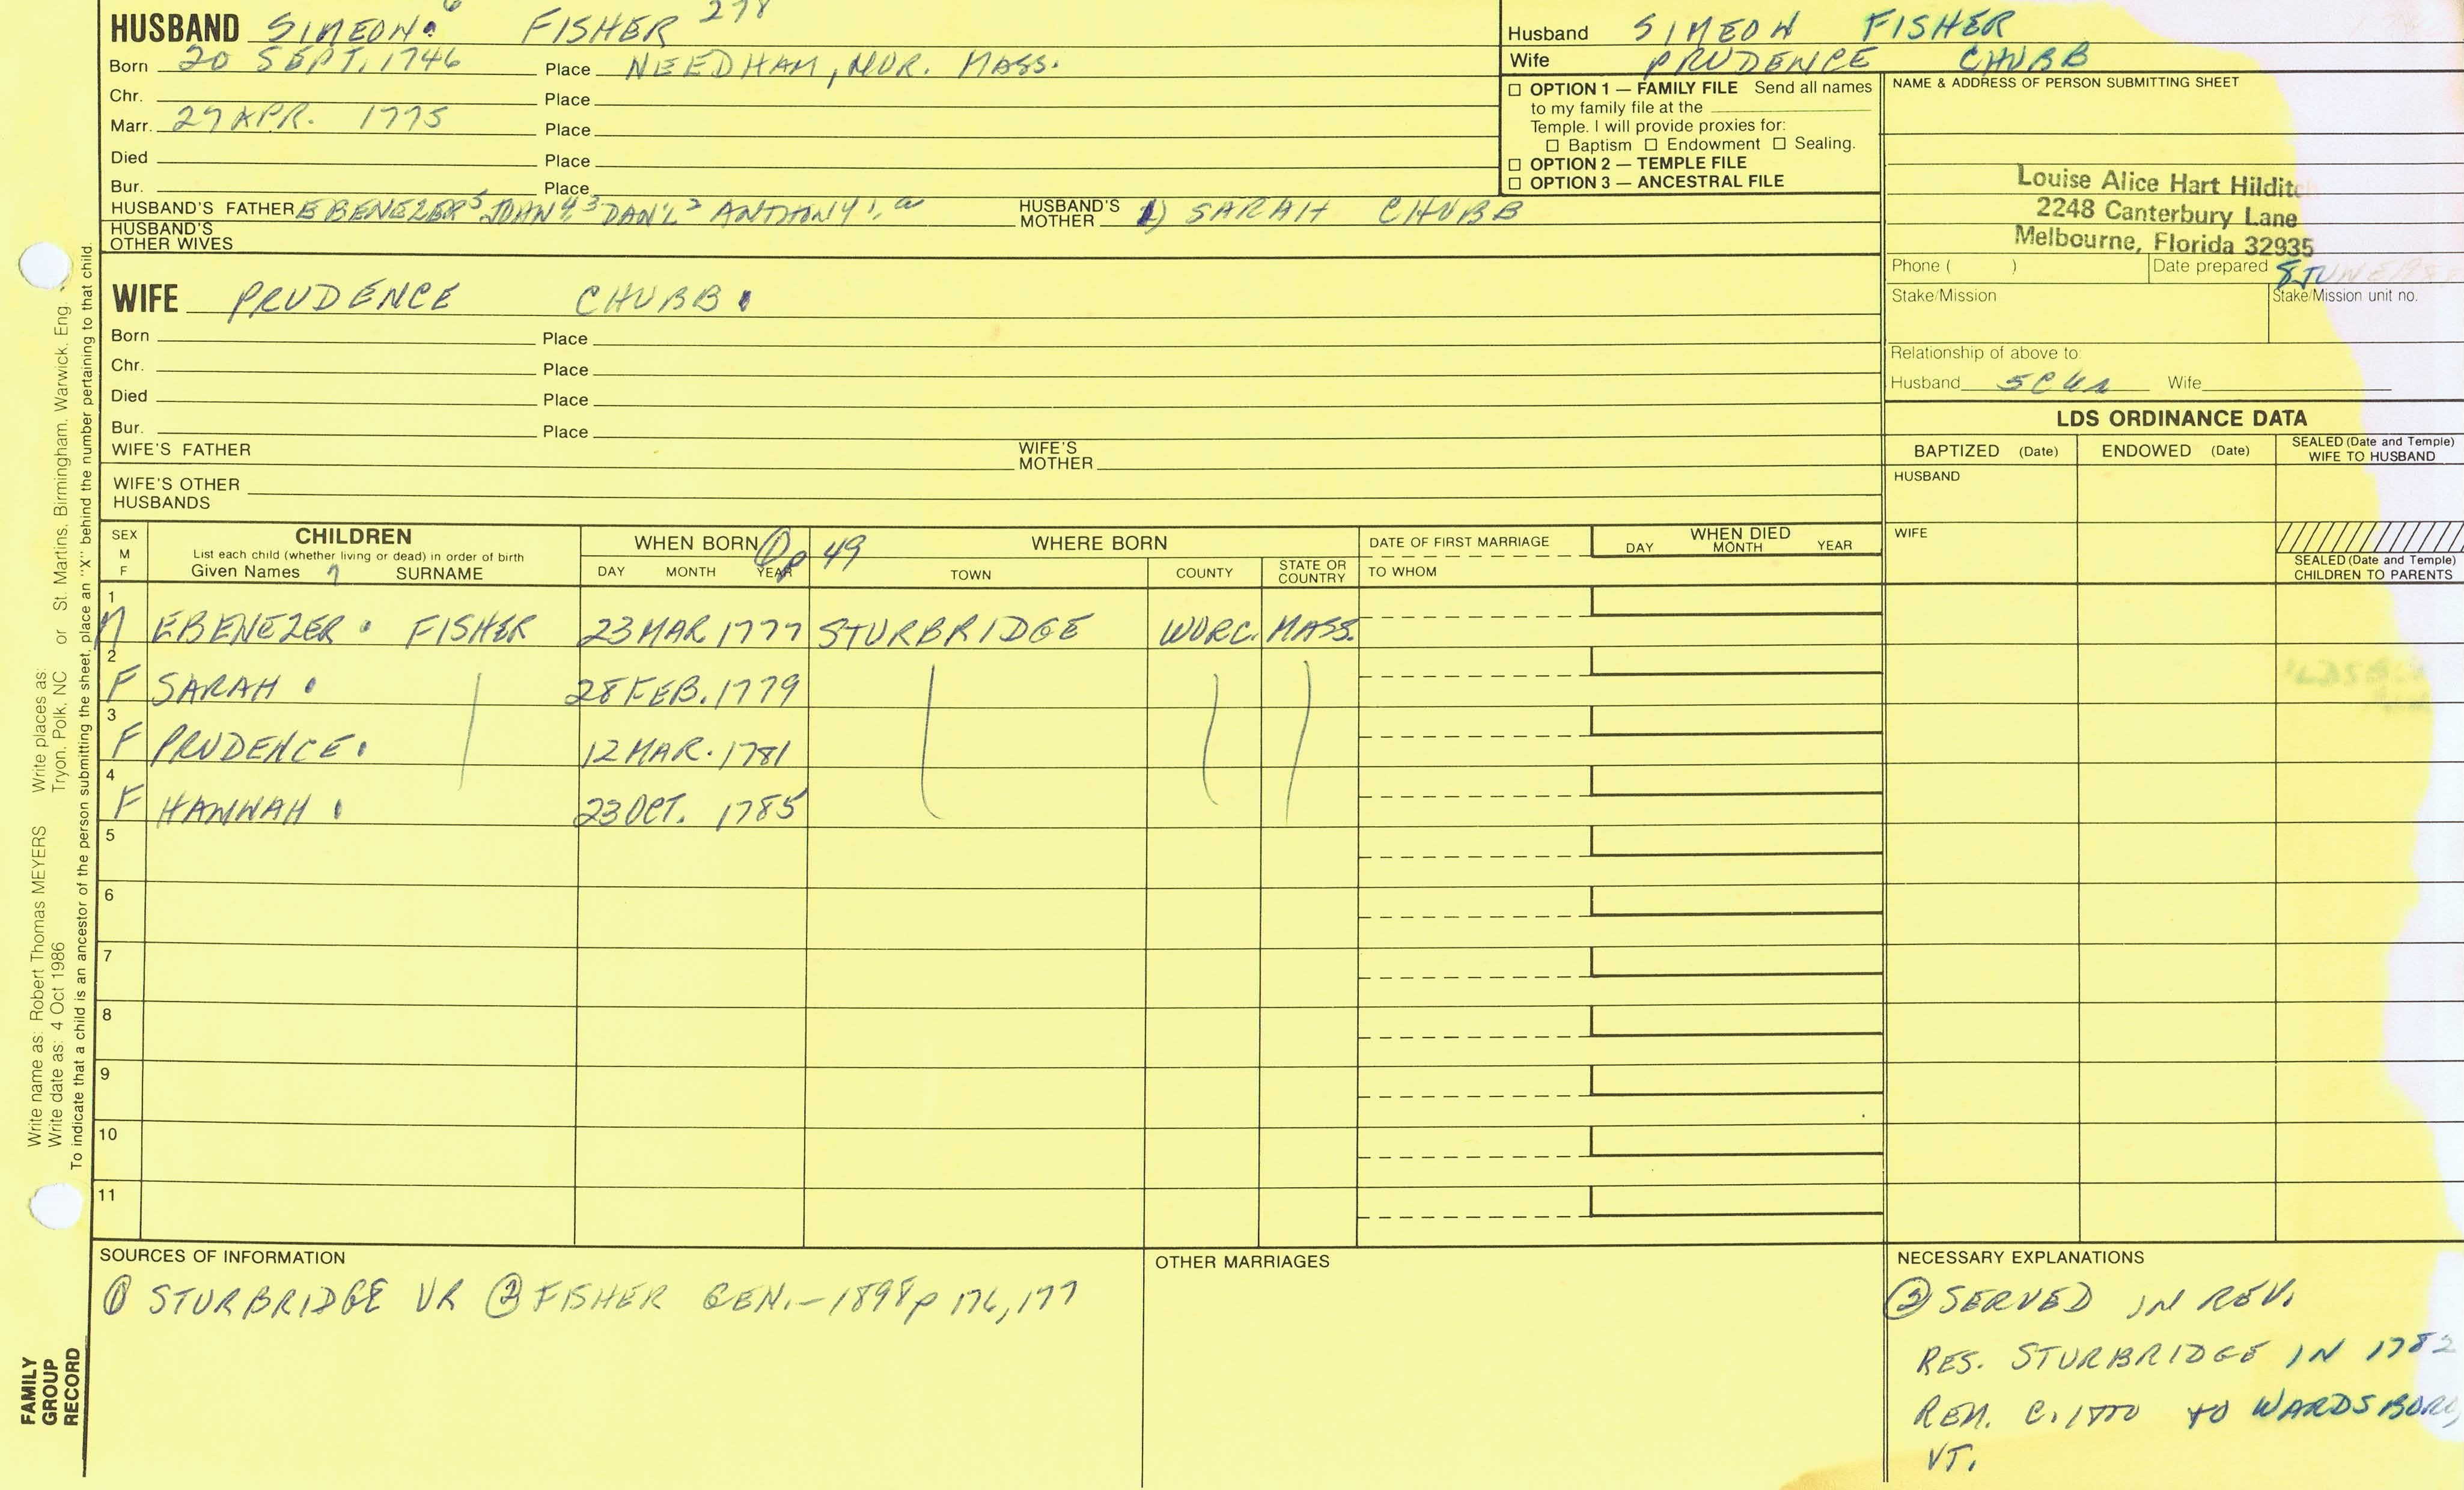 HUSBAND SIMEON 6 FISHER 278
Born 20 SEPT. 1746 Place NEEDHAM, NOR. MASS.
Chr. Place
Marr. 27 APR. 1775 Place
Died Place
Bur. Place
HUSBAND'S FATHER EBENEZER 5 JOHN 4,3 DAN'L 2 ANTHONY 1, HUSBAND'S MOTHER 1) SARAH CHUBB
HUSBAND'S OTHER WIVES
WIFE PRUDENCE CHUBB
Born Place
Chr. Place
Died Place
Bur. Place
WIFE'S FATHER WIFE'S MOTHER
WIFE'S OTHER HUSBANDS
Husband SIMEON FISHER
Wife PRUDENCE CHUBB
☐ OPTION 1 — FAMILY FILE Send all names
to my family file at the
Temple. I will provide proxies for:
☐ Baptism ☐ Endowment ☐ Sealing.
☐ OPTION 2 — TEMPLE FILE
☐ OPTION 3 — ANCESTRAL FILE
NAME & ADDRESS OF PERSON SUBMITTING SHEET
Louise Alice Hart Hilditc
2248 Canterbury Lane
Melbourne, Florida 32935
Phone ( ) Date prepared 8 JUNE
Stake/Mission Stake/Mission unit no.
Relationship of above to:
Husband Wife
LDS ORDINANCE DATA
BAPTIZED (Date) ENDOWED (Date) SEALED (Date and Temple) WIFE TO HUSBAND
HUSBAND
WIFE
SEALED (Date and Temple) CHILDREN TO PARENTS
SEX M F CHILDREN
List each child (whether living or dead) in order of birth
Given Names 7 SURNAME
WHEN BORN ① p 49 WHERE BORN
DAY MONTH YEAR TOWN COUNTY STATE OR COUNTRY
DATE OF FIRST MARRIAGE
TO WHOM
WHEN DIED
DAY MONTH YEAR
1 M EBENEZER FISHER 23 MAR 1777 STURBRIDGE WORC. MASS.
2 F SARAH 28 FEB. 1779
3 F PRUDENCE 12 MAR. 1781
4 F HANNAH 23 OCT. 1785
5
6
7
8
9
10
11
SOURCES OF INFORMATION
① STURBRIDGE VR ② FISHER GEN. - 1898 p 176, 177
OTHER MARRIAGES
NECESSARY EXPLANATIONS
② SERVED IN REV.
RES. STURBRIDGE IN 1782
REM. C. 1800 TO WARDSBORO,
VT.
Write name as: Robert Thomas MEYERS Write places as:
Write date as: 4 Oct 1986 Tryon, Polk, NC or St. Martins, Birmingham, Warwick, Eng.
To indicate that a child is an ancestor of the person submitting the sheet, place an "X" behind the number pertaining to that child.
FAMILY
GROUP
RECORD